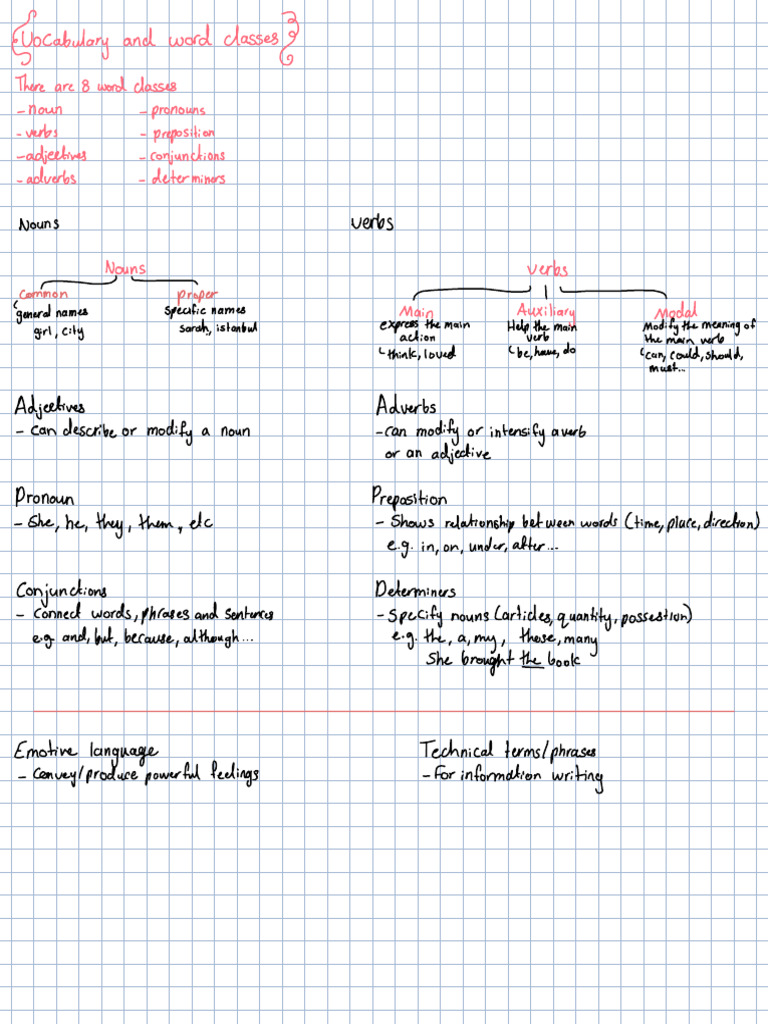 Vocabulary and word classes
There are 8 word classes
- noun - pronouns
- verbs - preposition
- adjectives - conjunctions
- adverbs - determiners
Nouns
verbs
Nouns
common
general names
girl, city
proper
specific names
sarah, istanbul
verbs
Main
express the main
action
think, loved
Auxiliary
Help the main
verb
be, have, do
Modal
Modify the meaning of
the main verb
can, could, should,
must...
Adjectives
- can describe or modify a noun
Adverbs
- can modify or intensify a verb
or an adjective
Pronoun
- She, he, they, them, etc
Preposition
- Shows relationship between words (time, place, direction)
e.g. in, on, under, after...
Conjunctions
- connect words, phrases and sentences
e.g. and, but, because, although...
Determiners
- Specify nouns (articles, quantity, possestion)
e.g. the, a, my, those, many
She brought the book
Emotive language
- Convey/produce powerful feelings
Technical terms/phrases
- For information writing